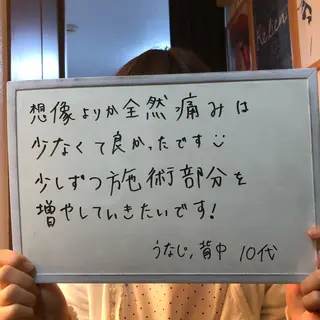 想像よりか全然痛みは
少なくて良かったです
少しずつ施術部分を
増やしていきたいです!
うなじ,背中 10代